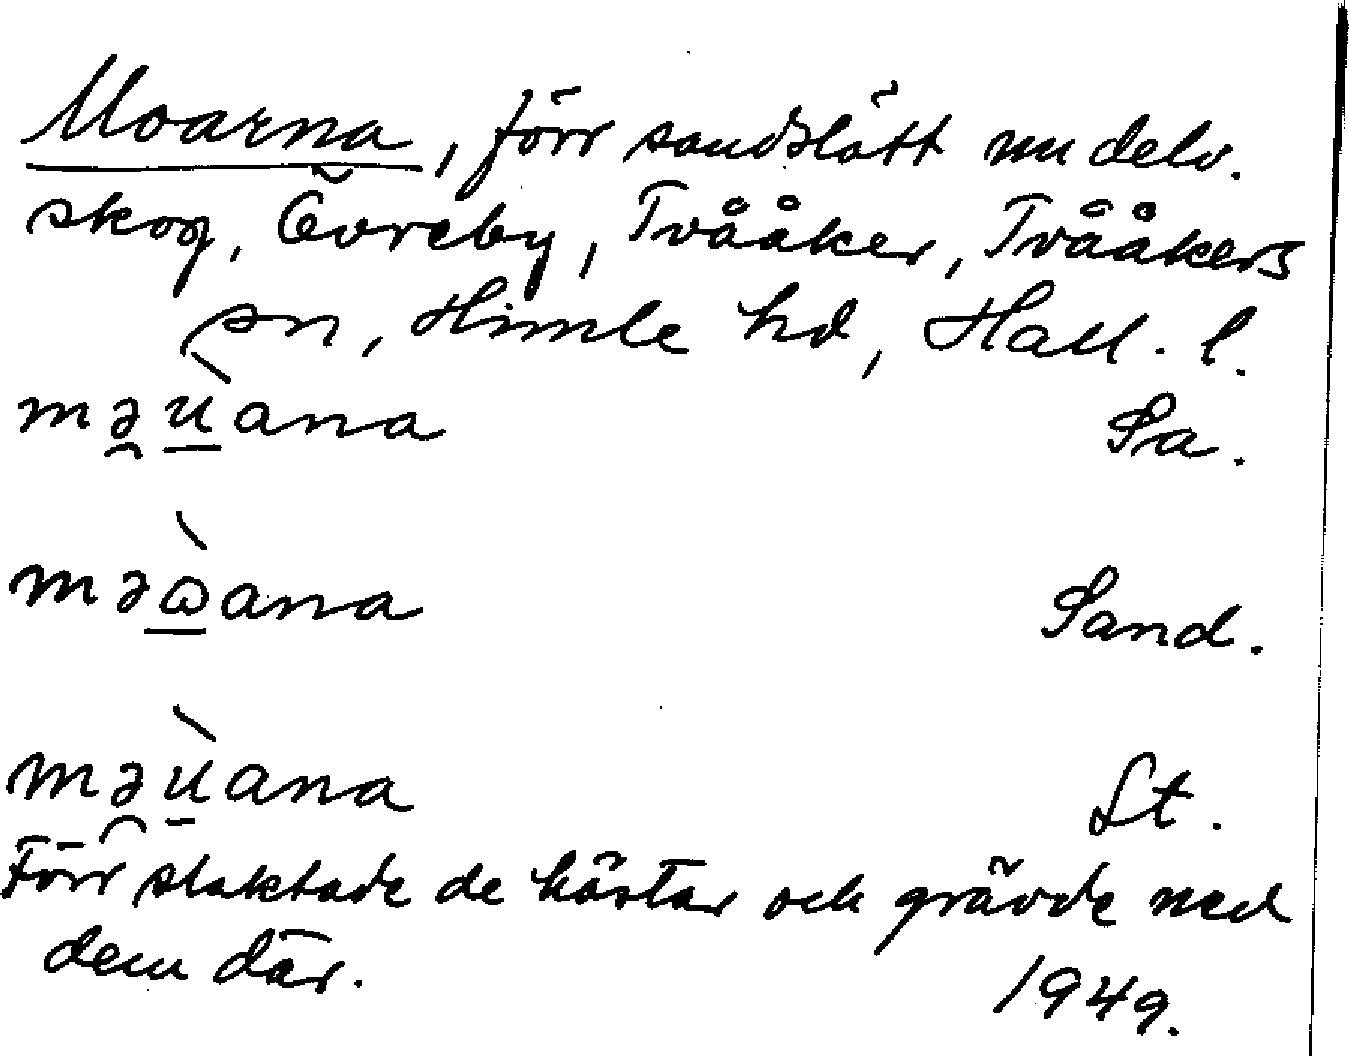 Moarna, förr sandslätt nu delv.
skog, Övreby, Tvååker, Tvååkers
sn, Himle hd, Hall. l.
mə̯ùana Sa.
məὼana Sand.
mə̯ùana St.
Förr slaktade de hästar och grävde ned
dem där. 1949.